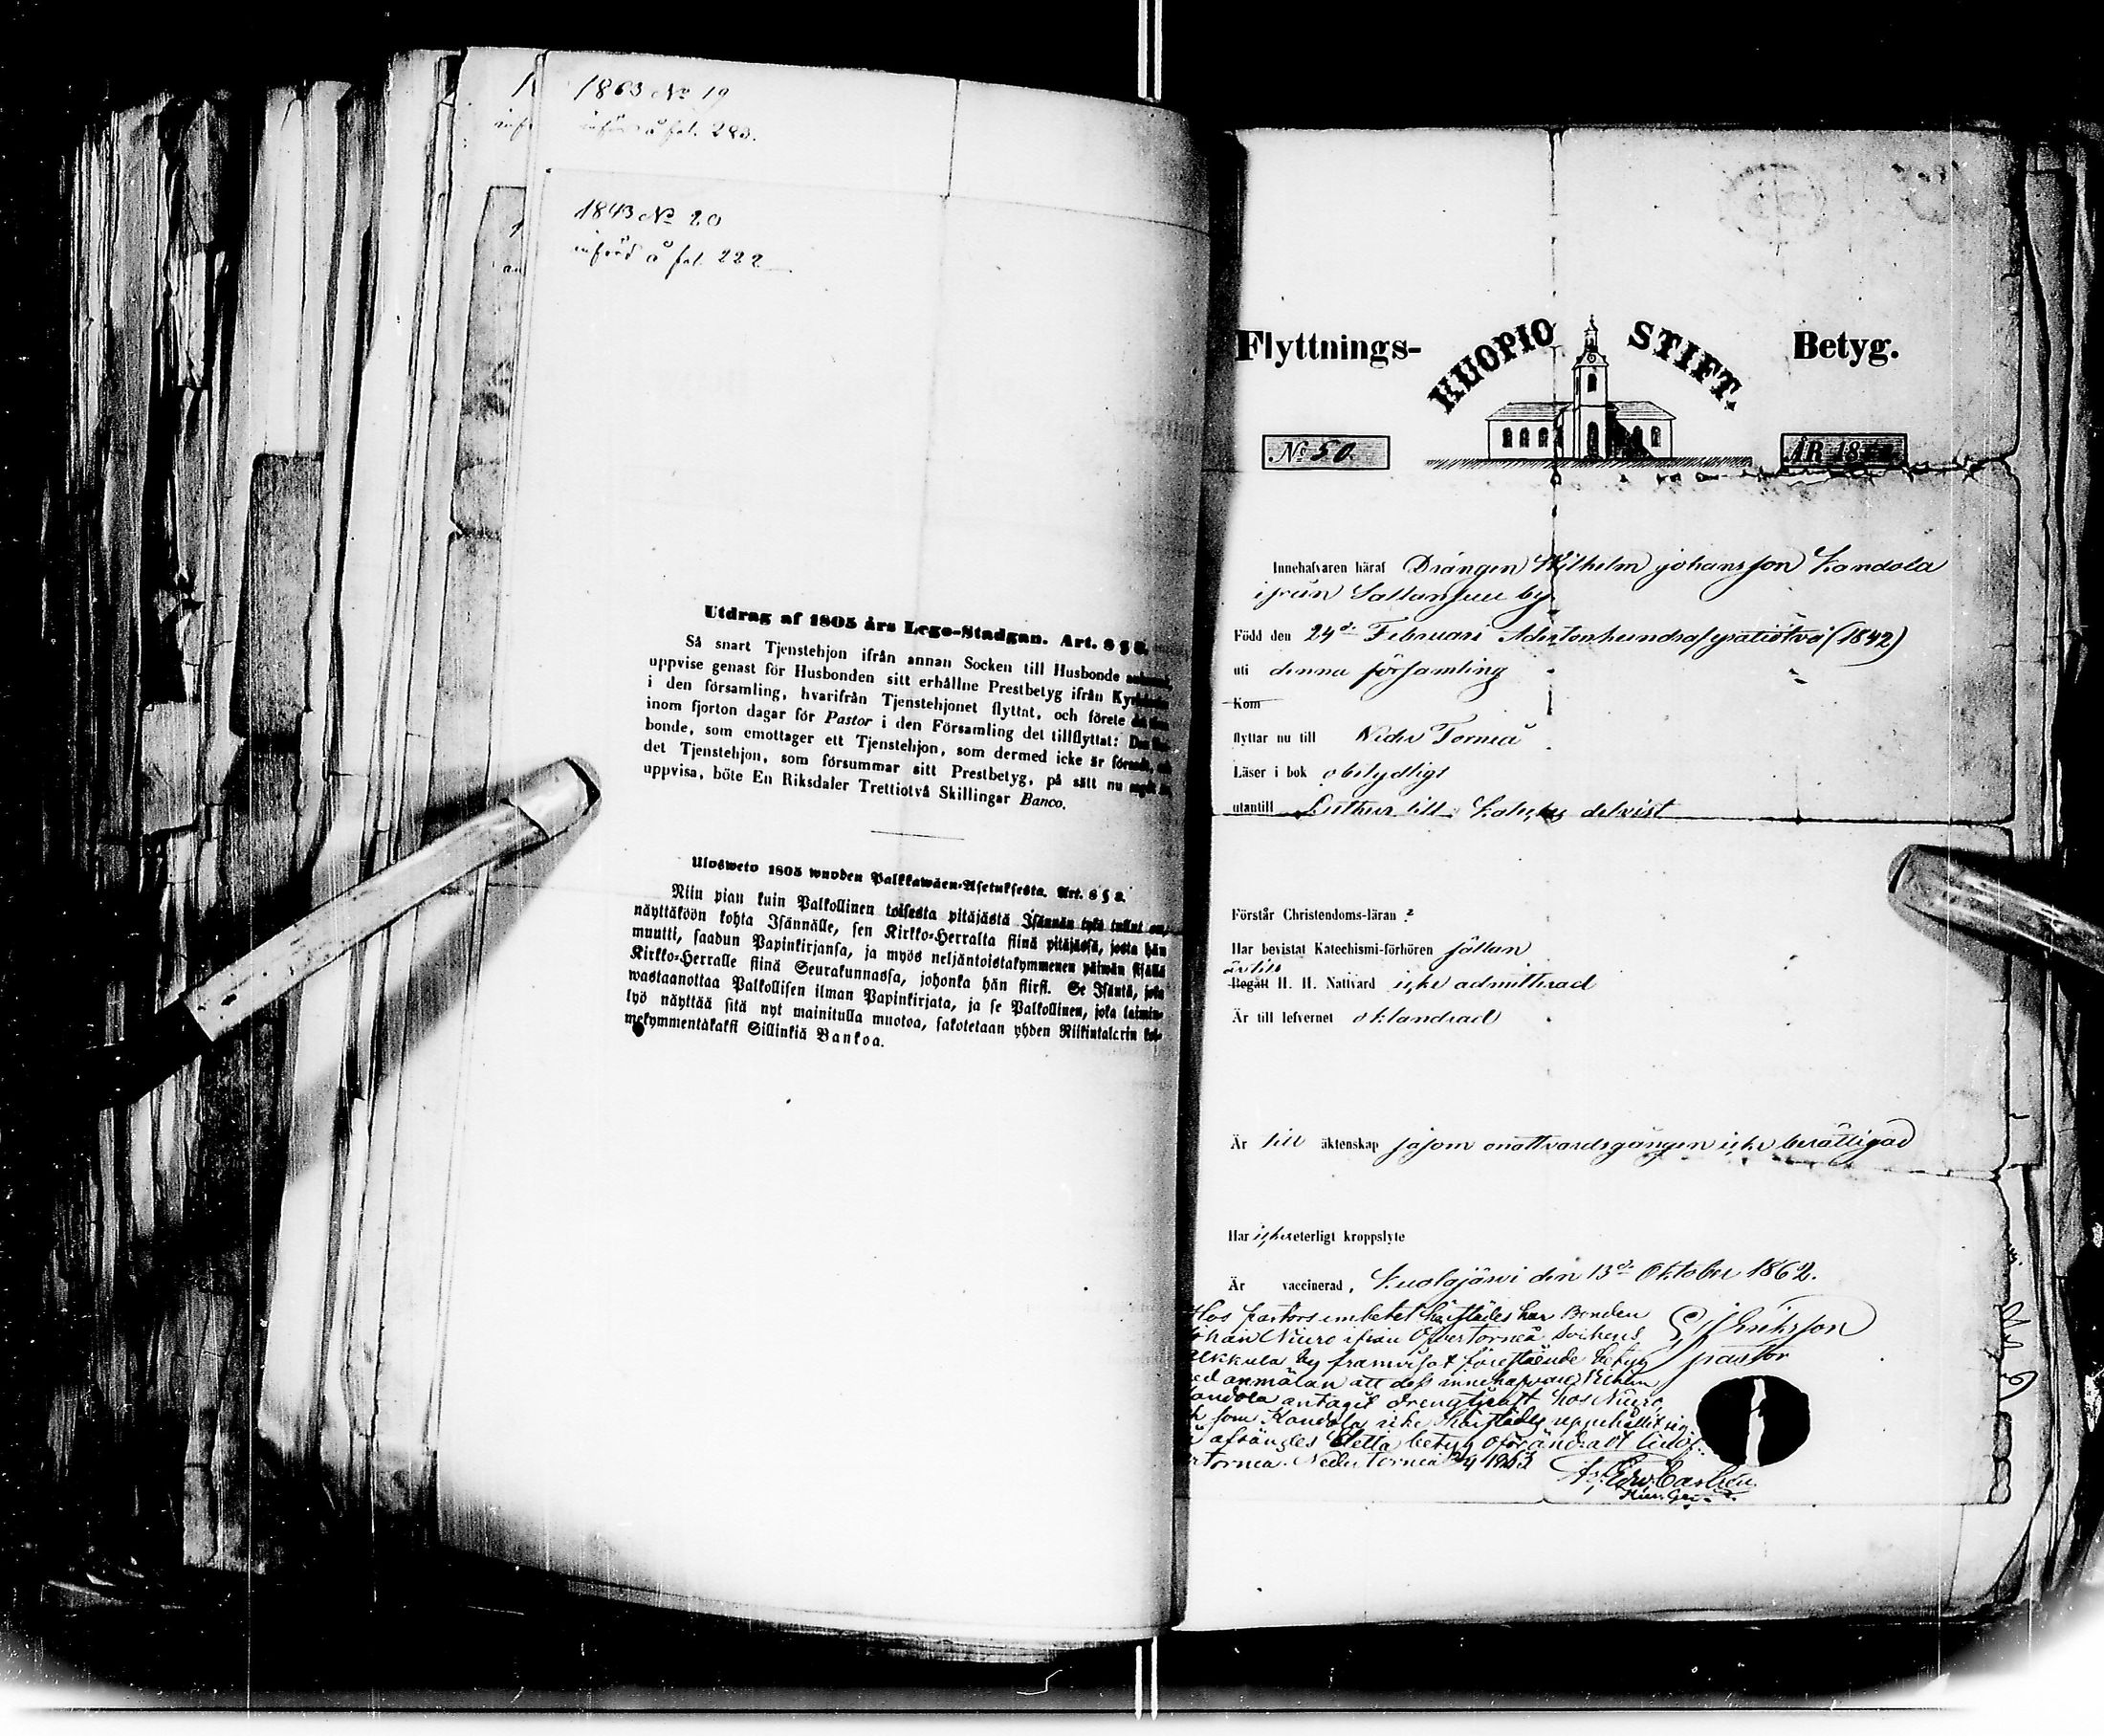 1863 No 19
införd å fol. 283.
1843 No 20
införd å fol. 222
Utdrag af 1805 års Lego-Stadgan. Art. 8 § 8.
Så snart Tjenstehjon ifrån annan Socken till Husbonde
uppvise genast för Husbonden sitt erhållne Prestbetyg ifrån
i den församling, hvarifrån Tjenstehjonet flyttat, och förete
inom fjorton dagar för Pastor i den Församling det tillflyttat: Den
bonde, som emottager ett Tjenstehjon, som dermed icke är försedt,
det Tjenstehjon, som försummar sitt Prestbetyg, på sätt nu
uppvisa, böte En Riksdaler Trettiotvå Skillingar Banco.
Ulosweto 1805 wuoden Palkkawäen-Asetuksesta. Art. 8 § 8.
Niin pian kuin Palkollinen toisesta pitäjästä Isännän tykö tullut on,
näyttäköön kohta Isännälle, sen Kirkko-Herralta siinä pitäjässä, josta hän
muutti, saadun Papinkirjansa, ja myös neljäntoistakymmenen päiwän sisällä
Kirkko-Herralle siinä Seurakunnassa, johonka hän siirsi. Se Isäntä, joka
wastaanottaa Palkollisen ilman Papinkirjata, ja se Palkollinen, joka laimin-
lyö näyttää sitä nyt mainitulla muotoa, sakotetaan yhden Riikintalerin kol-
mekymmentäkaksi Sillinkiä Bankoa.
Flyttnings- KUOPIO STIFT. Betyg.
No 50. ÅR 18
Innehafvaren häraf Drängen Wilhelm Johansson Kandola
ifrån Sallansuu by
Född den 24de Februari Adertonhundrafyratiotvå (1842)
uti denna församling
Kom
flyttar nu till Neder Torneå
Läser i bok obetydligt
utantill Luther till delvist
Förstår Christendoms-läran ?
Har bevistat Katechismi-förhören sällan
är till
Begått H. H. Nattvard icke admitterad
Är till lefvernet oklandrad
Är till äktenskap såsom onattvardsgången icke berättigad
Har icke veterligt kroppslyte
Är vaccinerad, Kuolajärvi den 13de Oktober 1862.
Hos pastors embetet härstädes har Bonden
Johan Niuro ifrån Öfver Torneå Sockens
by framvisat förestående betyg pastor
med anmälan att dess innehafvare Wilhelm
Kandola antagit drengtjenst hos Niuro,
som Kandola icke härstädes uppehållit sig
afsändes detta betyg oförändradt till Öf-
ver Torneå. Neder Torneå 1863